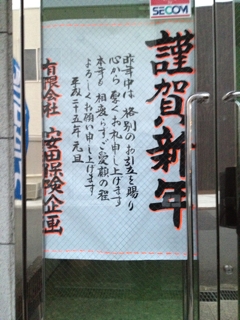 SECOM
謹賀新年
昨年中は格別のお引立を賜り
心から厚くお礼申し上げます
本年も相変らずご愛顧の程
よろしくお願い申し上げます
平成二十五年 元旦
有限会社 安田保険企画